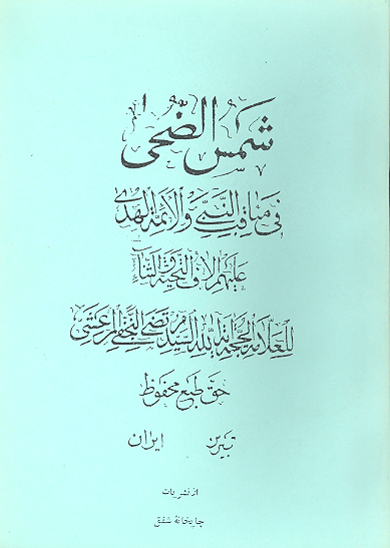 شمس الضحى
في مناقب النبي والأئمة الهدى
عليهم آلاف التحية والثناء
للعلامة الحجة آية الله السيد مرتضى النجفي المرعشي
حق طبع محفوظ
تبریز ایران
از نشریات
چاپخانهٔ شفق